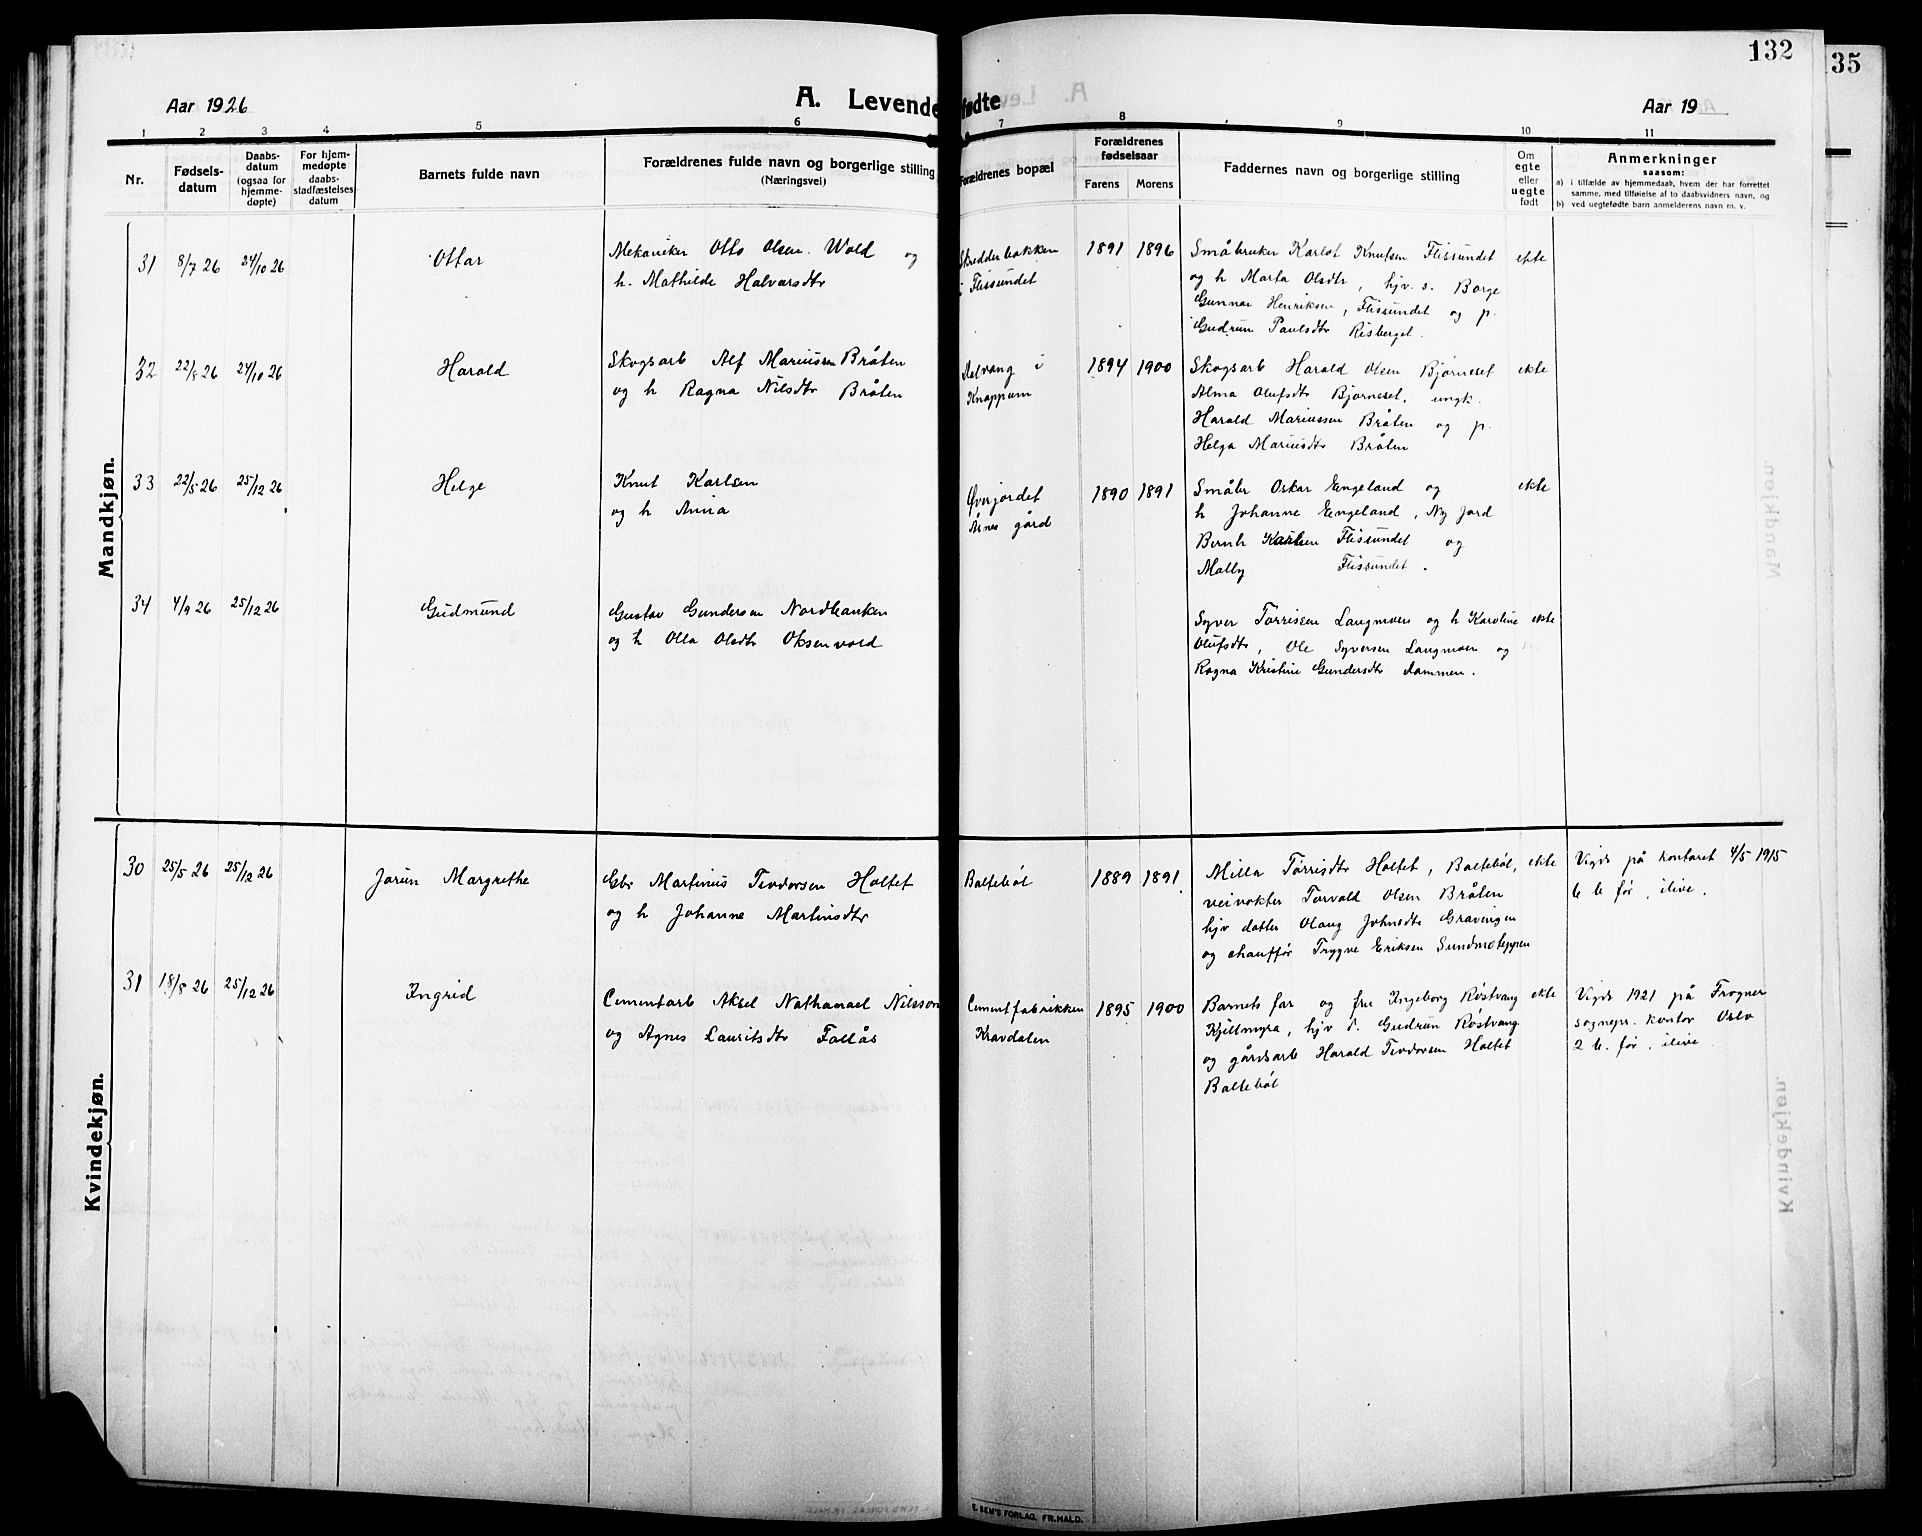 132
35
Aar 1926
A. Levendefødte
Aar 19
1 2 3 4 5 6 7 8 9 10 11
Nr.
Fødsels-
datum
Daabs-
datum
(ogsaa for
hjemme-
døpte)
For hjem-
medøpte
daabs-
stadfæstelses
datum
Barnets fulde navn
Forældrenes fulde navn og borgerlige stilling
(Næringsvei)
Forældrenes bopæl
Forældrenes
fødselsaar
Farens Morens
Faddernes navn og borgerlige stilling
Om
egte
eller
uegte
født
Anmerkninger
saasom:
a) i tilfælde av hjemmedaab, hvem der har forrettet
samme, med tilføielse af to daabsvidners navn, og
b) ved uegtefødte barn anmelderens navn m. v.
Mandkjøn.
31 8/7 26 24/10 26 Ottar
Mekaniker Otto Olsen Wold og
h. Mathilde Halvarsdtr
Skredderbakken
i Flissundet
1891 1896
Småbruker Karlot Knutsen Flissundet
og h Marta Olsdtr, hjv. s. Borge
Gunnar Henriksen, Flissundet og p.
Gudrun Paulsdtr Risberget.
ekte
32 22/8 26 24/10 26 Harald
Skogsarb Alf Mariussen Bråten
og h Ragna Nilsdtr Bråten
Alvang i
Knappum
1894 1900
Skogsarb Harald Olsen Bjørneset
Alma Olufsdtr Bjørneset, ungk.
Harald Mariussen Bråten og p.
Helga Mariusdtr Bråten
ekte
33 22/5 26 25/12 26 Helge
Knut Karlsen
og h Anna
Øverjordet
Åsnes gård
1890 1891
Småbr Oskar Engeland og
h Johanne Engeland, Ny Jord
Bernh Karlsen Flissundet og
Molly Flissundet.
ekte
34 4/9 26 25/12 26 Gudmund
Gustav Gundersen Nordbanken
og h Olla Olsdtr Oksenvold
Syver Torrissen Langmoen og h Karoline
Olufsdtr, Ole Syversen Langmoen og
Ragna Kristine Gundersdtr dammen.
ekte
Kvindekjøn.
30 25/5 26 25/12 26 Jorun Margrethe
Gbr Martinius Teodorsen Holtet
og h Johanne Martinsdtr
Baltebøl
1889 1891
Milla Torrisdtr Holtet, Baltebøl,
veivokter Torvald Olsen Bråten
hjv datter Olaug Johnsdtr Gravingen
og chauffør Trygve Eriksen Sundmoteppen
ekte
Vigds på kontoret 4/5 1915
6 b før, ilive.
31 18/8 26 25/12 26 Ingrid
Cementarb Aksel Nathanael Nilsson
og Agnes Lauritsdtr Fallås
Cementfabrikken
Kravdalen
1895 1900
Barnets far og fru Ingeborg Røstvang
Kjellmyra, hjv d. Gudrun Røstvang
og gårdsarb Harald Teodorsen Holtet
Baltebøl
ekte
Vigds 1921 på Frogner
sognepr. kontor Oslo
2 b. før, ilive.
E. SEM'S FORLAG, FR.HALD.